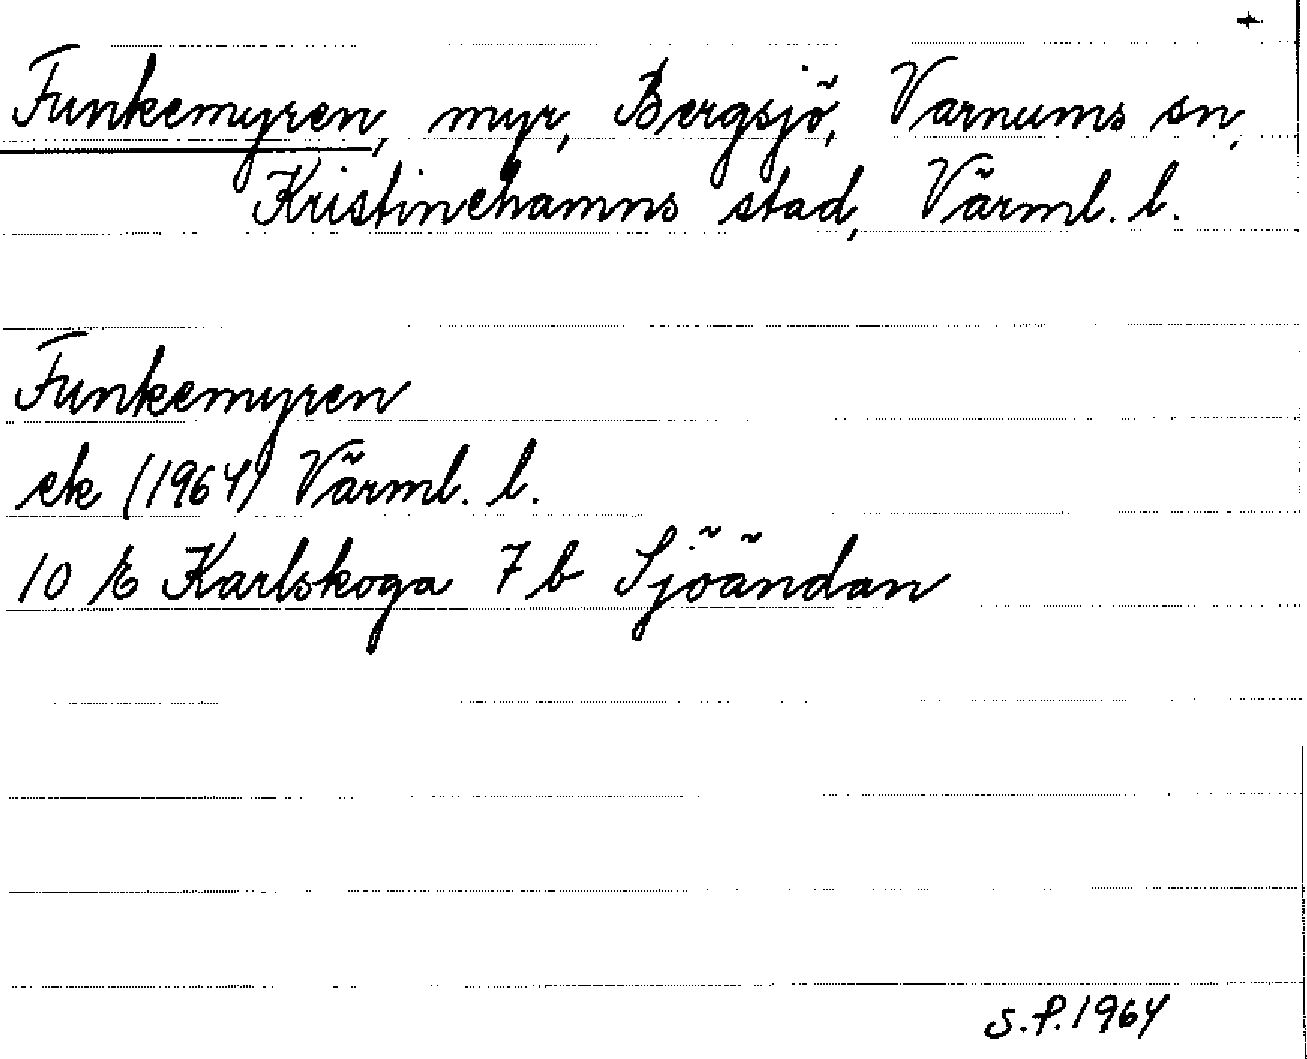 +
Funkemyren, myr, Bergsjö, Varnums sn,
Kristinehamns stad, Värml. l.
Funkemyren
ek (1964) Värml. l.
10 E Karlskoga 7 b Sjöändan
S.P. 1964